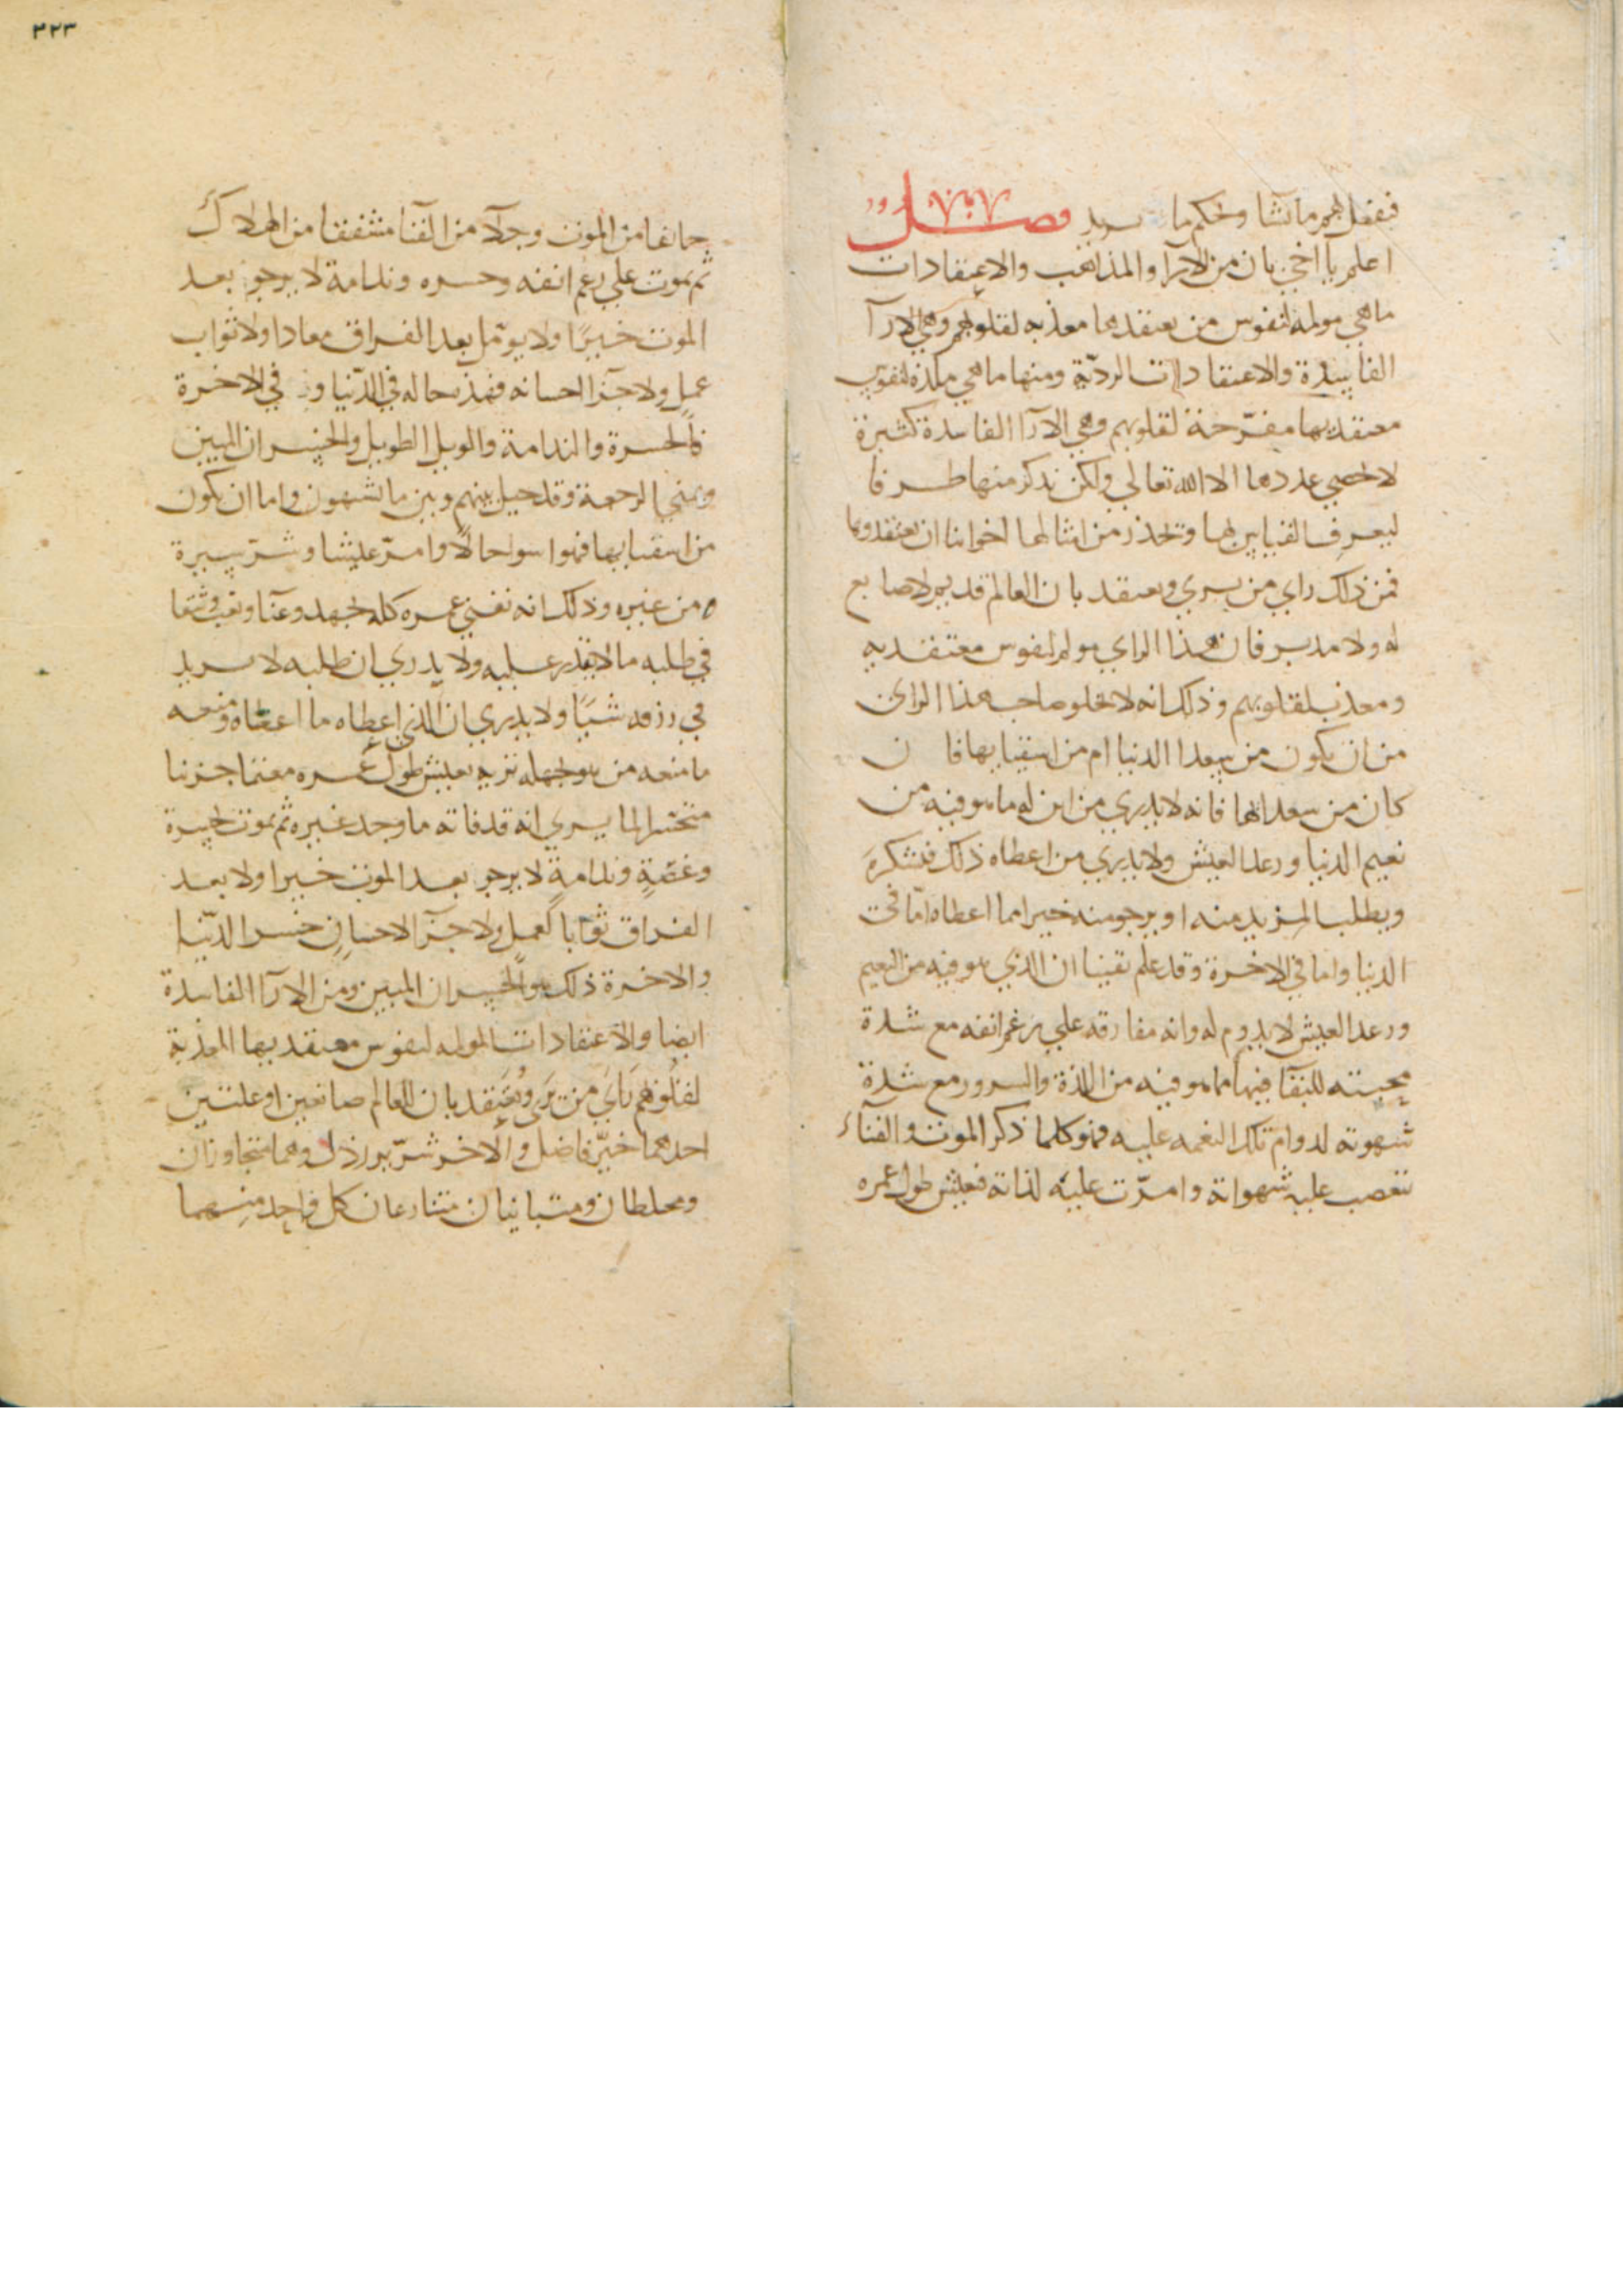 فيفعل بهم ما تشا وتحكم ما يريد فصل
اعلم يا اخي بان من الارآ والمذاهب والاعتقادات
ما هي مولمة لنفوس من يعتقدها معذبه لقلوبهم وهي الارآ
الفاسدة والاعتقادات الرديّة ومنها ما هي ملذة لنفوس
معتقديها مفرّحة لقلوبهم وهي الارآ الفاسدة كثيرة
لا تحصي عددها الا الله تعالي ولكن نذكر منها طرفا
ليعرف القياس بها وتحذر من امثالها اخواننا ان يعتقدوها
فمن ذلك راي من يري ويعتقد بان العالم قديم لا صانع
له ولا مدبر فان هذا الراي مولم لنفوس معتقديه
ومعذب لقلوبهم وذلك انه لا يخلو صاحب هذا الراي
من ان يكون من سعدا الدنيا ام من اشقيايها فان
كان من سعدائها فانه لا يدري من اين له ما هو فيه من
نعيم الدنيا ورغد العيش ولا يدري من اعطاه ذلك فيشكره
ويطلب المزيد منه او يرجو منه خيرا مما اعطاه امّا في
الدنيا واما في الاخرة وقد علم يقينا ان الذي هو فيه من النعيم
ورغد العيش لا يدوم له وانه مفارقه علي رغم انفه مع شدة
محبته للبقا فيها مما هو فيه من اللذة والسرور مع شدة
شهوته لدوام تلك النعمه عليه فهو كلما ذكر الموت والفنآء
تنغصت عليه شهواته وامرّت عليه لذاته فيعيش طول عمره
٣٢٣
خائفا من الموت وجلآ من الفنا مشفقا من الهلاك
ثم يموت علي رغم انفه وحسره وندامة لا يرجو بعد
الموت خيرًا ولا يومّل بعد الفراق معادا ولا ثواب
عمل ولا جزآ احسانه فهذه حاله في الدّنيا و في الاخرة
فالحسرة والندامة والويل الطويل والخسران المبين
وتمني الرجعة وقد حيل بينهم وبين ما يشتهون واما ان يكون
من اشقيايها فهو اسوا حالًا وامرّ عيشا وشرّ سيرة
من غيره وذلك انه يفني عمره كله بجهد وعنآ وتعب وشقا
في طلبه ما لا يقدر عليه ولا يدري ان طلبه لا يريد
في رزقه شيًا ولا يدري ان الذي اعطاه ما اعطاه ومنعه
ما منعه من هو لجهله بربه يعيش طول عمره مغتما حزينا
متحسرا لما يري انه قد فاته ما وجد غيره ثم يموت بحسرة
وغصّةٍ وندامةٍ لا يرجو بعد الموت خيرا ولا بعد
الفراق ثوابا لعملٍ ولا جزآ الاحسانِ خسر الدّنيا
والاخرة ذلك هو الخسران المبين ومن الارآ الفاسدة
ايضا والاعتقادات المولمه لنفوس معتقديها المعذبة
لقلوبهم رَايَ من يَرَي ويُعتَقد بان للعالم صانعين او علتين
احدهما خيّر فاضل والاخر شرّير رذل وهما متجاوران
ومختلطان ومتباينان متنازعان كل واحد منهما